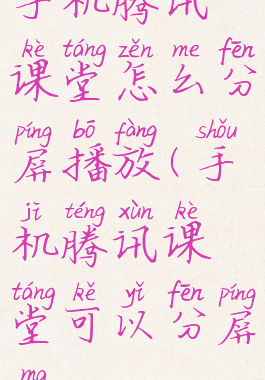 手机腾讯
kè táng zěn me fēn
课堂怎么分
píng bō fàng shǒu
屏播放(手
jī téng xùn kè
机腾讯课
táng kě yǐ fēn píng
堂可以分屏
ma